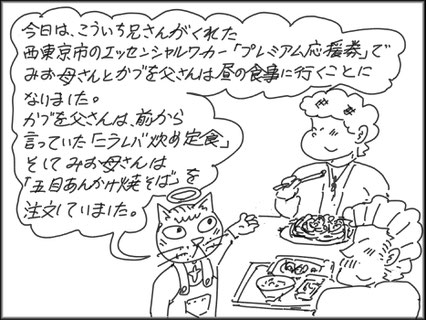 今日は、こういち兄さんがくれた
西東京市のエッセンシャルワカー「プレミアム応援券」で
みお母さんとかづを父さんは昼の食事に行くことに
なりました。
かづを父さんは、前から
言っていた「ニラレバ炒め定食」
そしてみお母さんは
「五目あんかけ焼そば」を
注文していました。